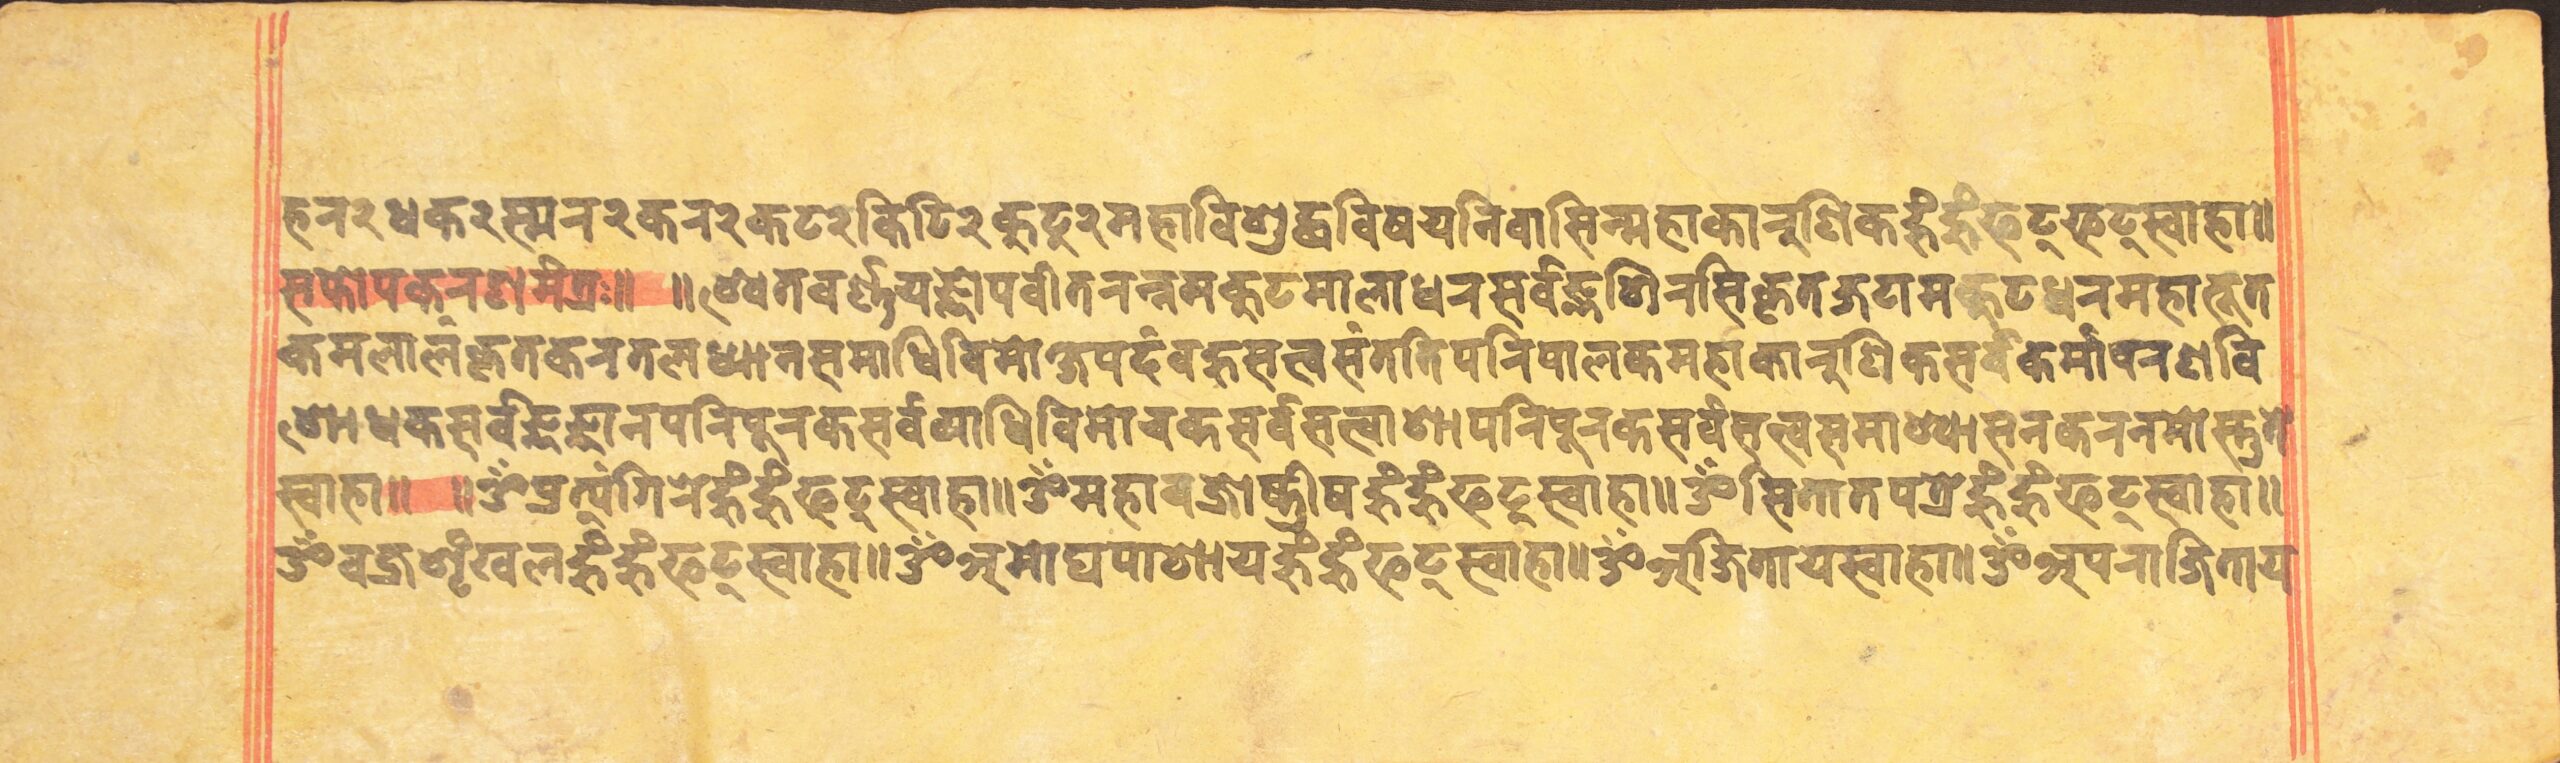 हन२धक२स्मन२कन२कट२किटि२कुटु२महाविशुद्धविषयनिवासिन्महाकारुणिकहूँहूँफट्फट्स्वाहा॥
सर्वोपकरणमंत्रः॥ ॥श्वेतवर्ण्णयज्ञोपवीतरत्नमकुटमालाधरसर्वज्ञशिरसिकृतजटामकुटधरमहाद्भूत
कमलालंकृतकरतलध्यानसमाधिविमोक्षपदंबहुसत्वसंततिपरिपालकमहाकारुणिकसर्वकर्मावरणवि
शोधकसर्वज्ञज्ञानपरिपूरकसर्वव्याधिविमोचकसर्वसत्वाशापरिपूरकसर्वसत्वसमाश्वासनकरनमोस्तुते
स्वाहा॥ ॥ॐप्रत्यंगिरेहूँहूँफट्स्वाहा॥ॐमहावज्रोष्णीषहूँहूँफट्स्वाहा॥ॐसितातपत्रेहूँहूँफट्स्वाहा॥
ॐवज्रशृंखलहूँहूँफट्स्वाहा॥ॐअमोघपाशायहूँहूँफट्स्वाहा॥ॐअजितायस्वाहा॥ॐअपराजिताय